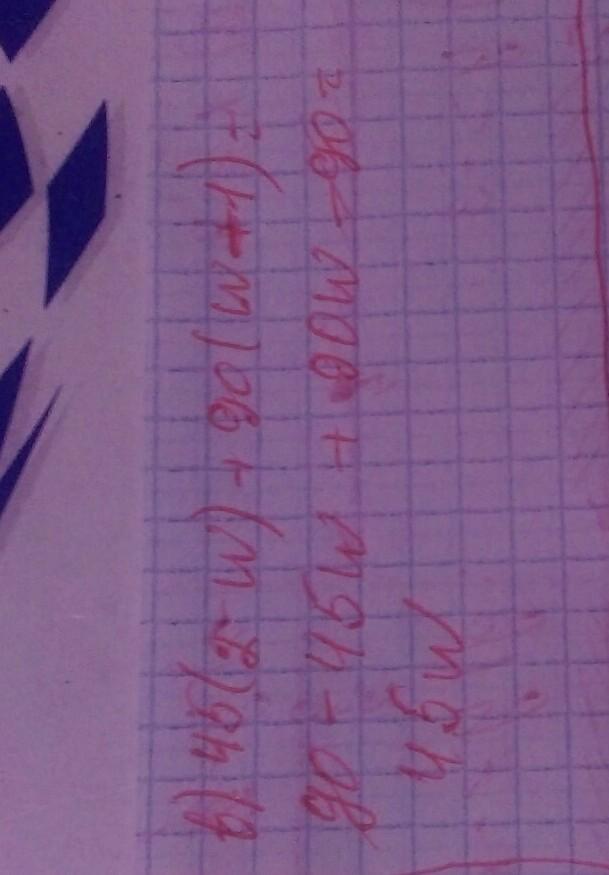 в) 45(2-w)+90(w+1)=
90-45w+90w-90=
45w